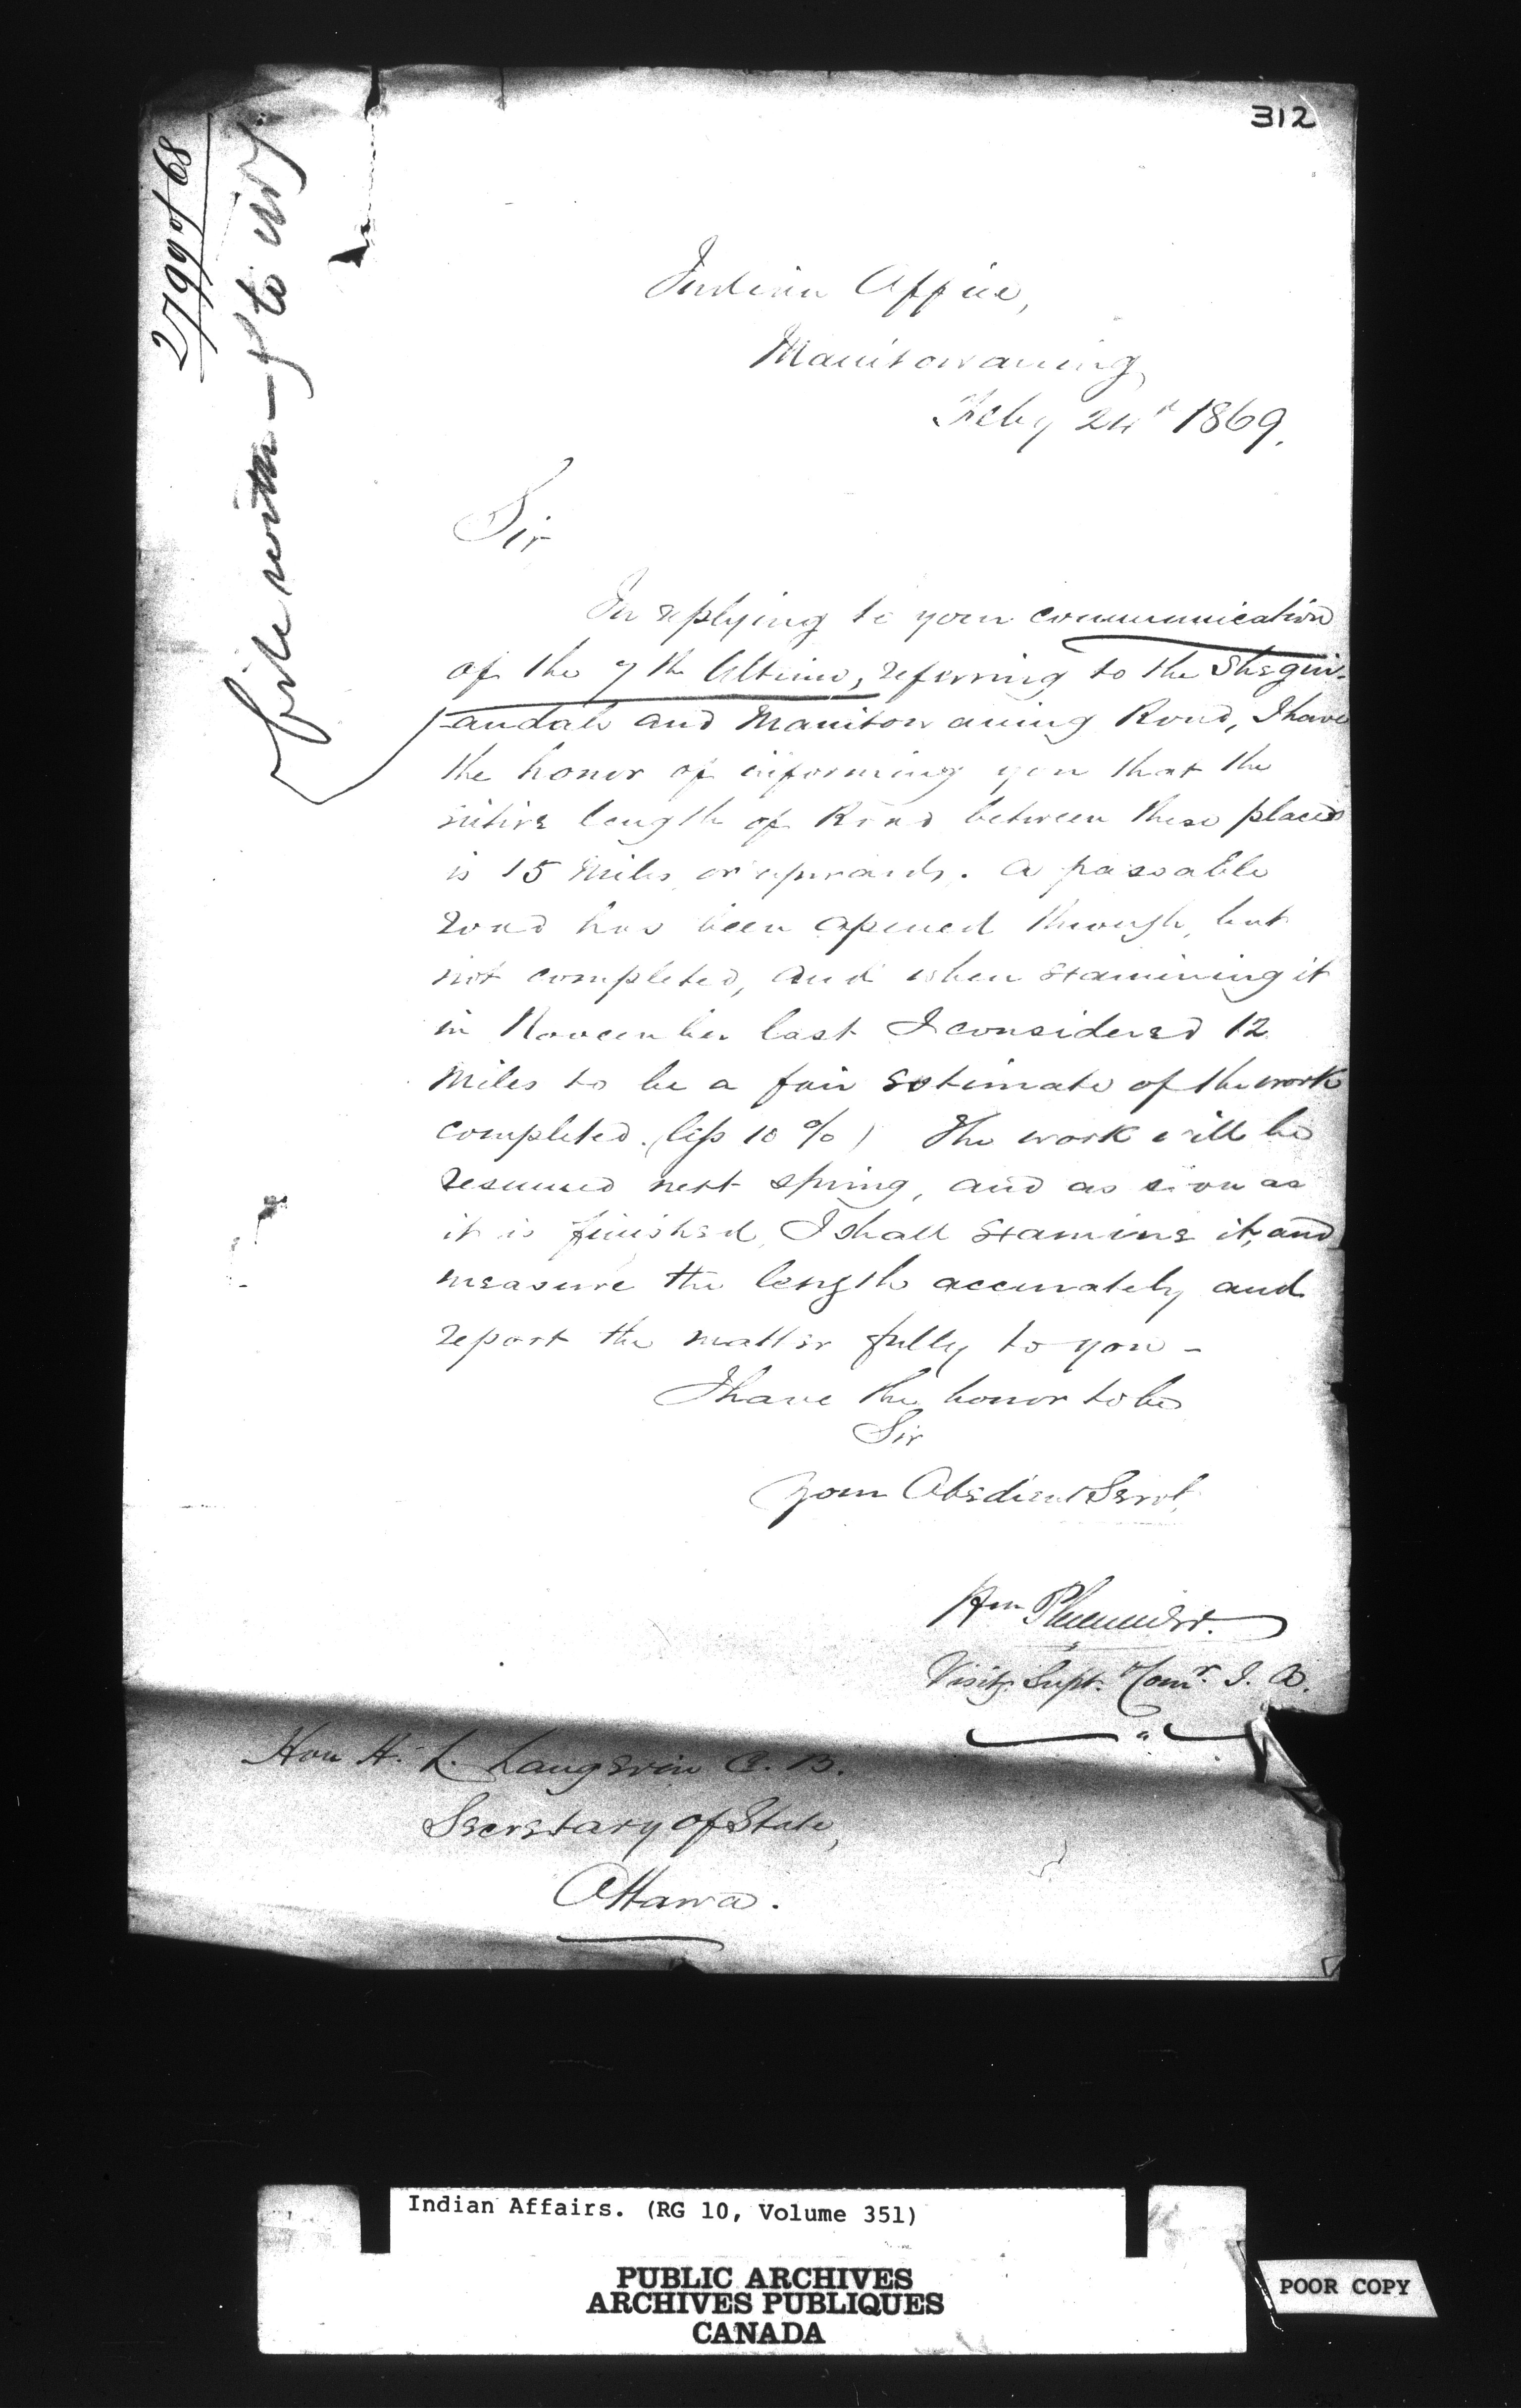 312
2799 of 68
File with —
Indian Office,
Manitowaning
Feby 24th 1869.
Sir
In replying to your communication
of the 7th Ultimo, referring to the Shegui-
-andah and Manitowaning Road, I have
the honor of informing you that the
entire length of Road between these places
is 15 miles or upwards. A passable
road has been opened through, but
not completed, and when examining it
in November last I considered 12
miles to be a fair estimate of the work
completed. (less 10 %) The work will be
resumed next spring, and as soon as
it is finished, I shall examine it, and
measure the length accurately and
report the matter fully to you —
I have the honor to be
Sir
Your Obedient Servt,
Wm Plummer.
Visitg. Supt. & Comr. I. A.
Hon H. L. Langevin C. B.
Secretary of State,
Ottawa.
Indian Affairs. (RG 10, Volume 351)
PUBLIC ARCHIVES
ARCHIVES PUBLIQUES
CANADA
POOR COPY